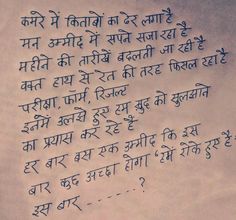 कमरे में किताबों का ढेर लगा है
मन उम्मीद में सपने सजा रहा है
महीने की तारीखें बदलती जा रही है
वक्त हाथ से रेत की तरह फिसल रहा है
परीक्षा, फॉर्म, रिजल्ट
इनमें उलझे हुए हम खुद को सुलझाने
का प्रयास कर रहे हैं
हर बार बस एक उम्मीद कि इस
बार कुछ अच्छा होगा "हमें रोके हुए है"
इस बार .......?